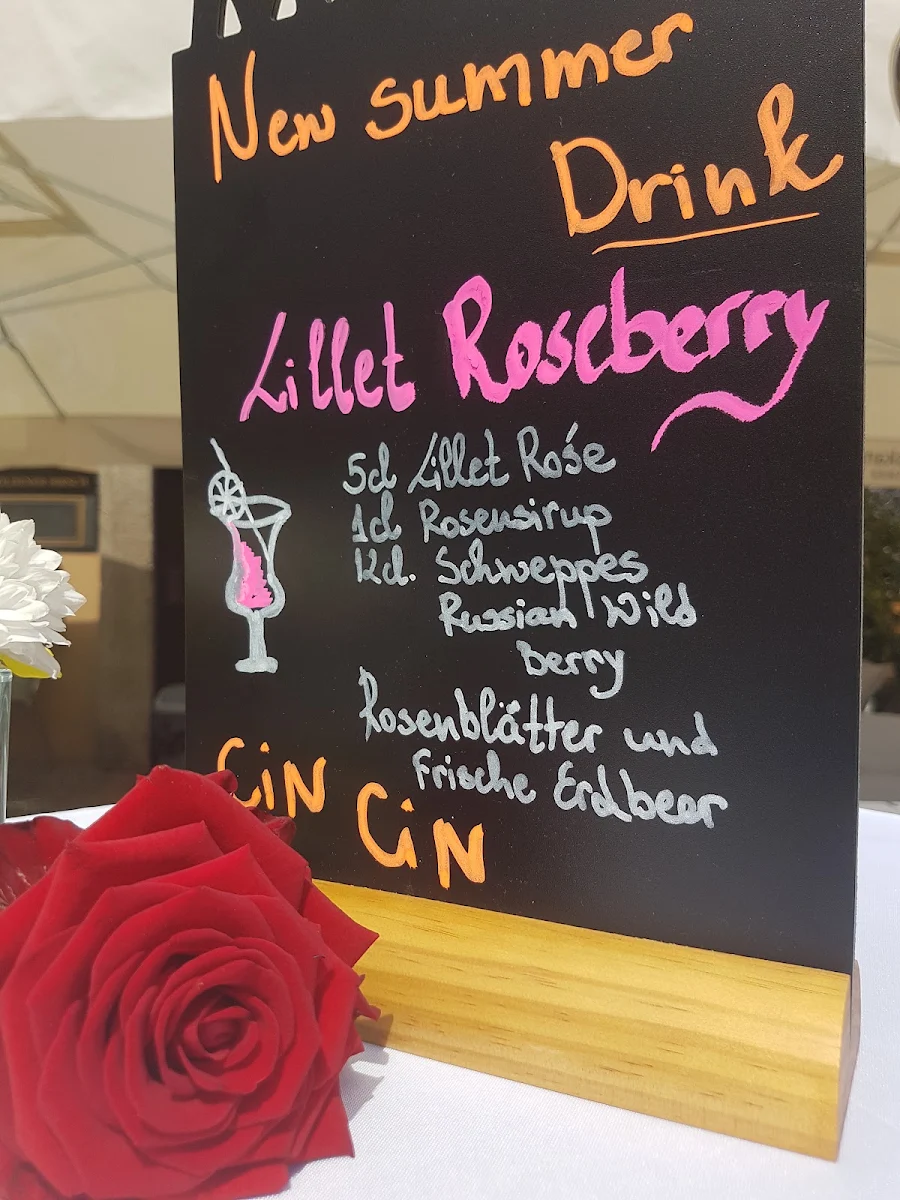 New summer
Drink
Lillet Roseberry
5cl Lillet Rosé
1cl Rosensirup
12cl. Schweppes
Russian Wild
berry
Rosenblätter und
frische Erdbeer
CiN
CiN